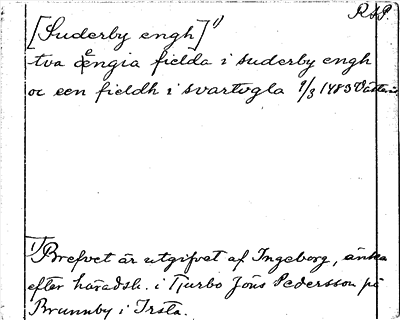 R.A.P.
[Suderby engh] 1)
tva Engia fielda i suderby engh
oc een fieldh i svartvgla 9/3 1483 Västerås
1) Brefvet är utgifvet af Ingeborg, änka
efter häradsh. i Tjurbo Jöns Pedersson på
Brunnby i Irsta.